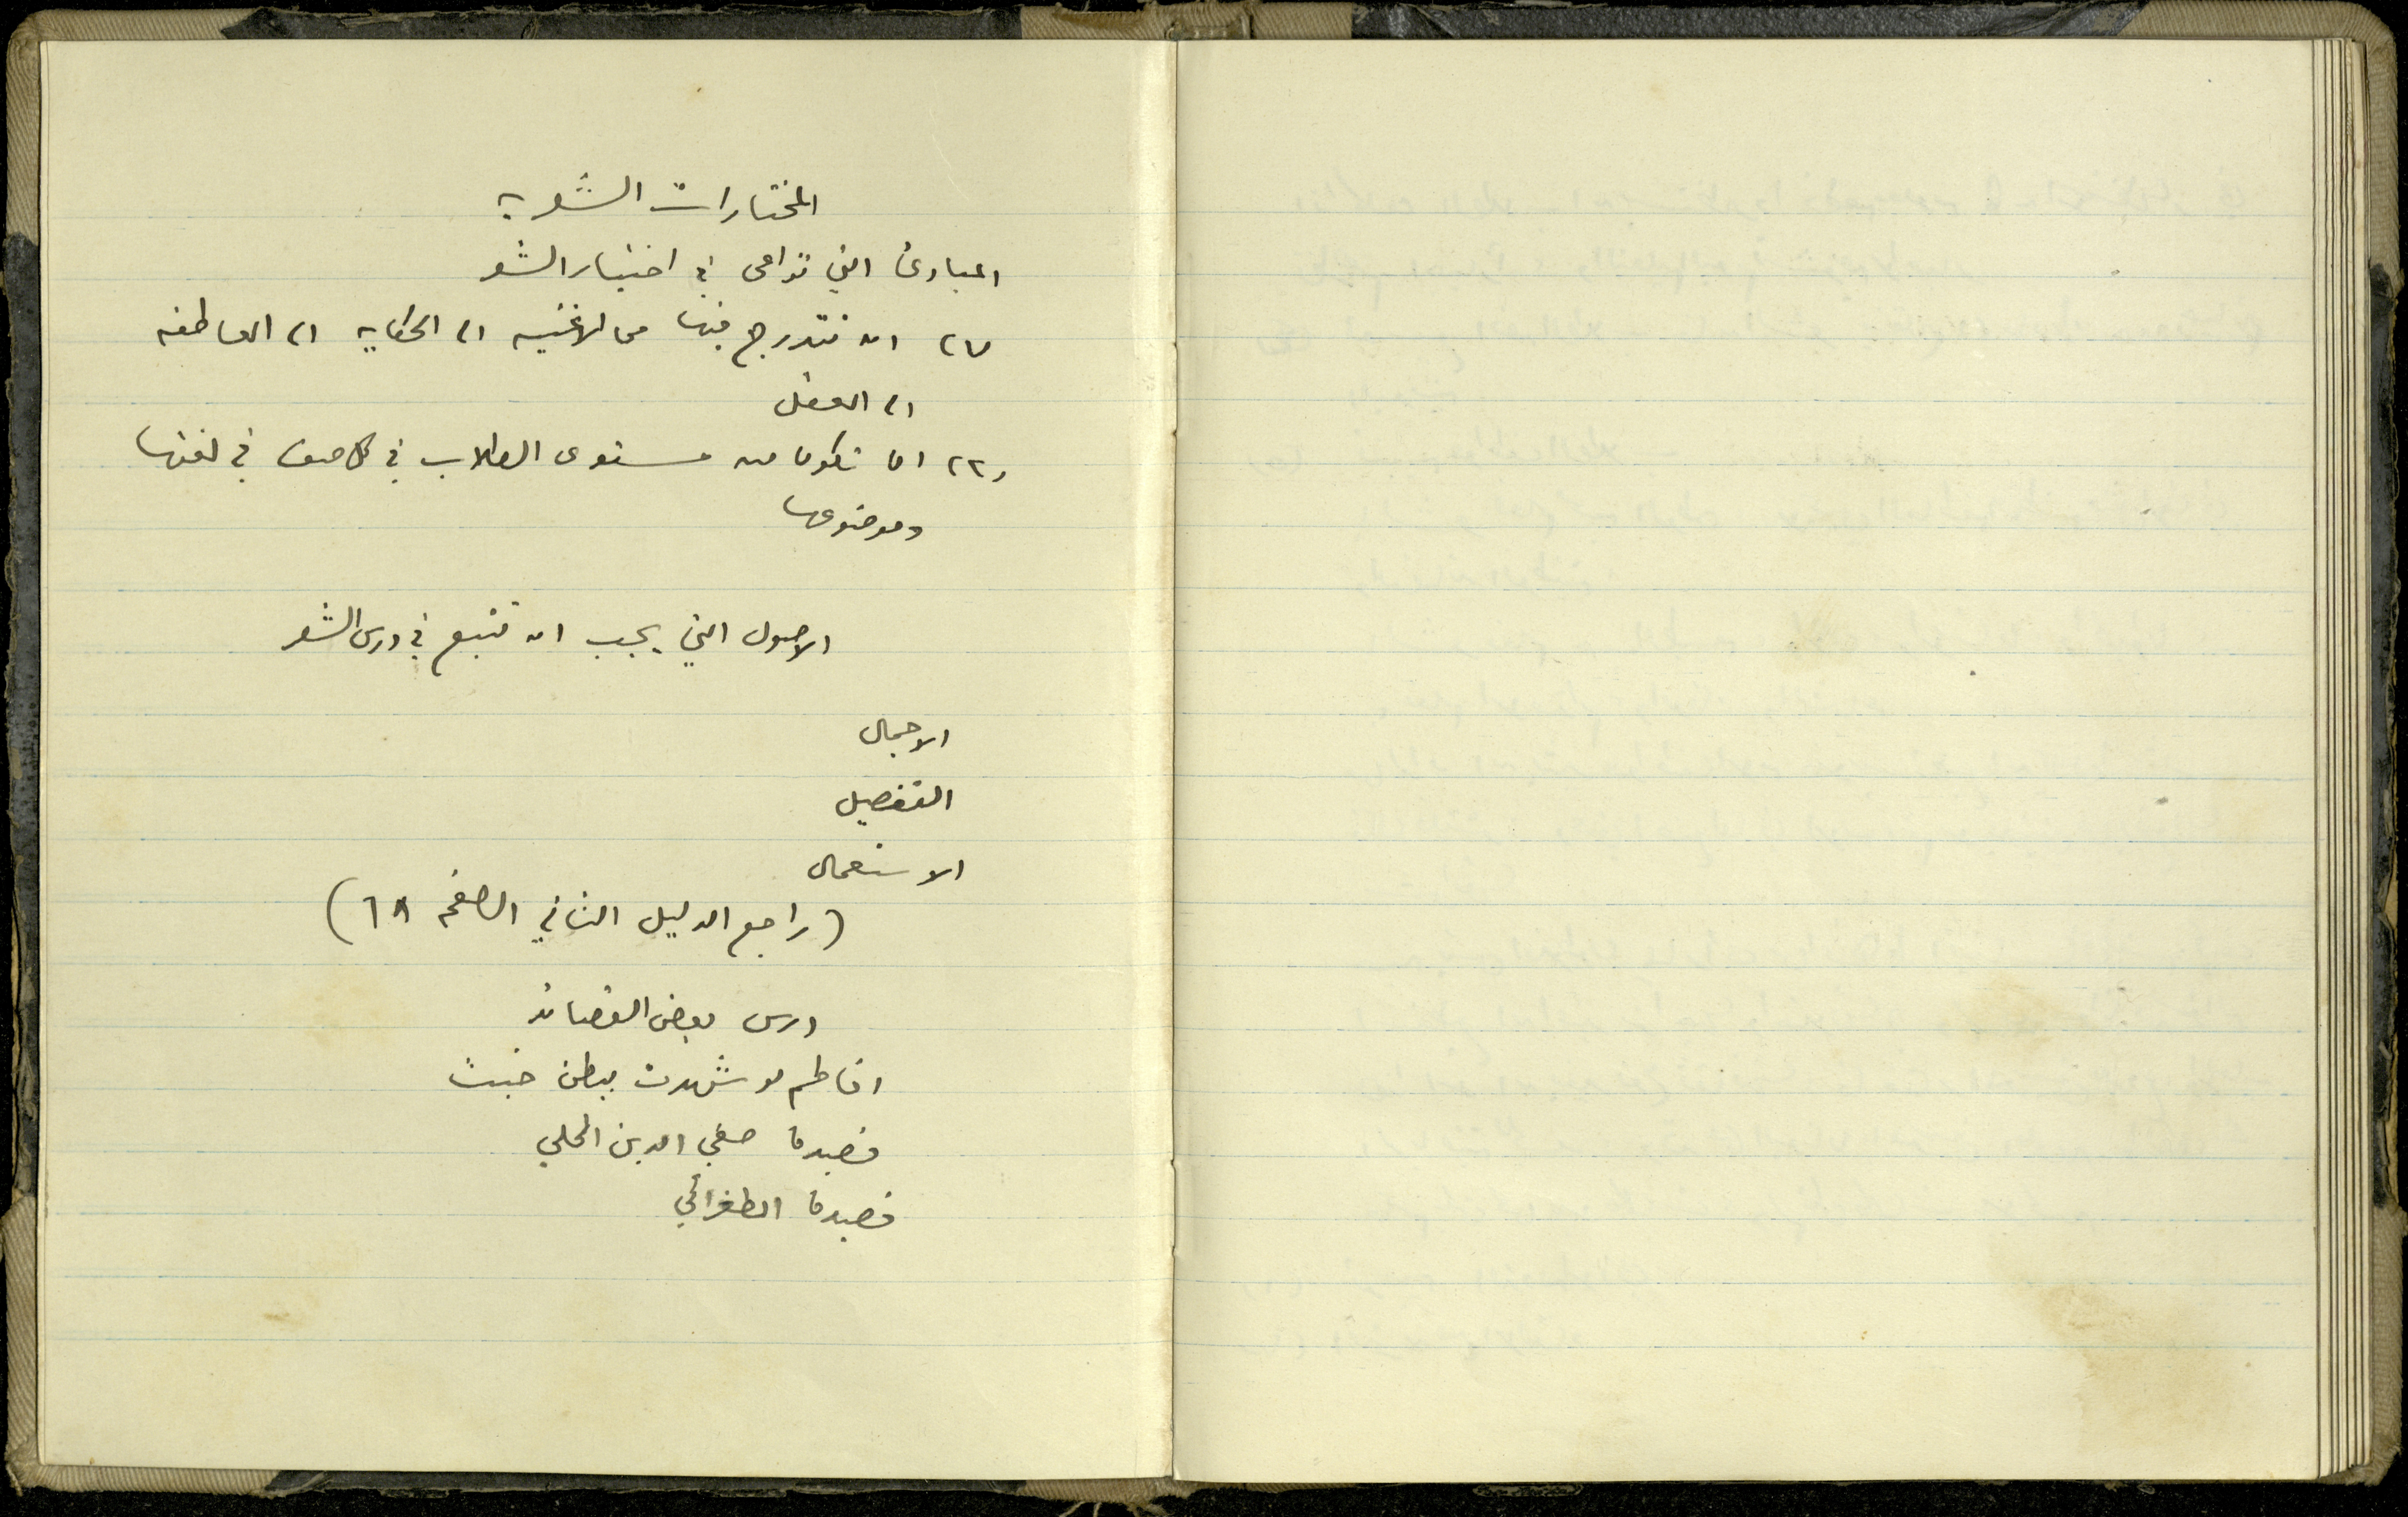 المختارات الشعرية
المبادئ التي تراعى في اختيار الشعر
(١) ان نتدرج فيها من الاغنيه الى الحكايه الى العاطفه
الى العقل
(٢) ان تكون من مستوى الطلاب في كل صف في لغتها
وموضوعها
الاصول التي يجب ان تتبع في درس الشعر
الاجمال
التفصيل
الاستعمال
(راجع الدليل الثاني الصفحه ٦٨)
درس بعض القصائد
افاطم لو شهدت ببطن خبت
قصيدة صفي الدين الحلي
قصيدة الطغرائي